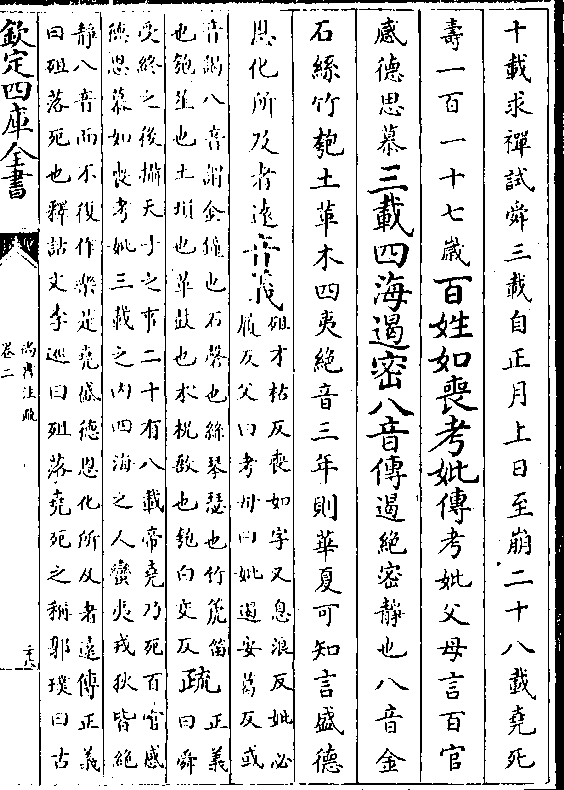 十載求禪試舜三載自正月上日至崩二十八載堯死
壽一百一十七歲百姓如喪考妣傳考妣父母言百官
感德思慕三載四海遏密八音傳遏絶密靜也八音金
石絲竹匏土革木四夷絶音三年則華夏可知言盛德
恩化所及者遠音義
殂才枯反喪如字又息浪反妣必
履反父曰考母曰妣遏安葛反或
音謁八音謂金鐘也石磬也絲琴瑟也竹箎笛
也匏笙也土塤也革鼓也木柷敔也匏白交反
疏
正義
曰舜
受終之後攝天子之事二十有八載帝堯乃死百官感
德思慕如喪考妣三載之内四海之人蠻夷戎狄皆絶
靜八音而不復作樂是堯盛德恩化所及者遠傳正義
曰殂落死也釋詁文李巡曰殂落堯死之稱郭璞曰古
欽定四庫全書
尚書注疏
卷二